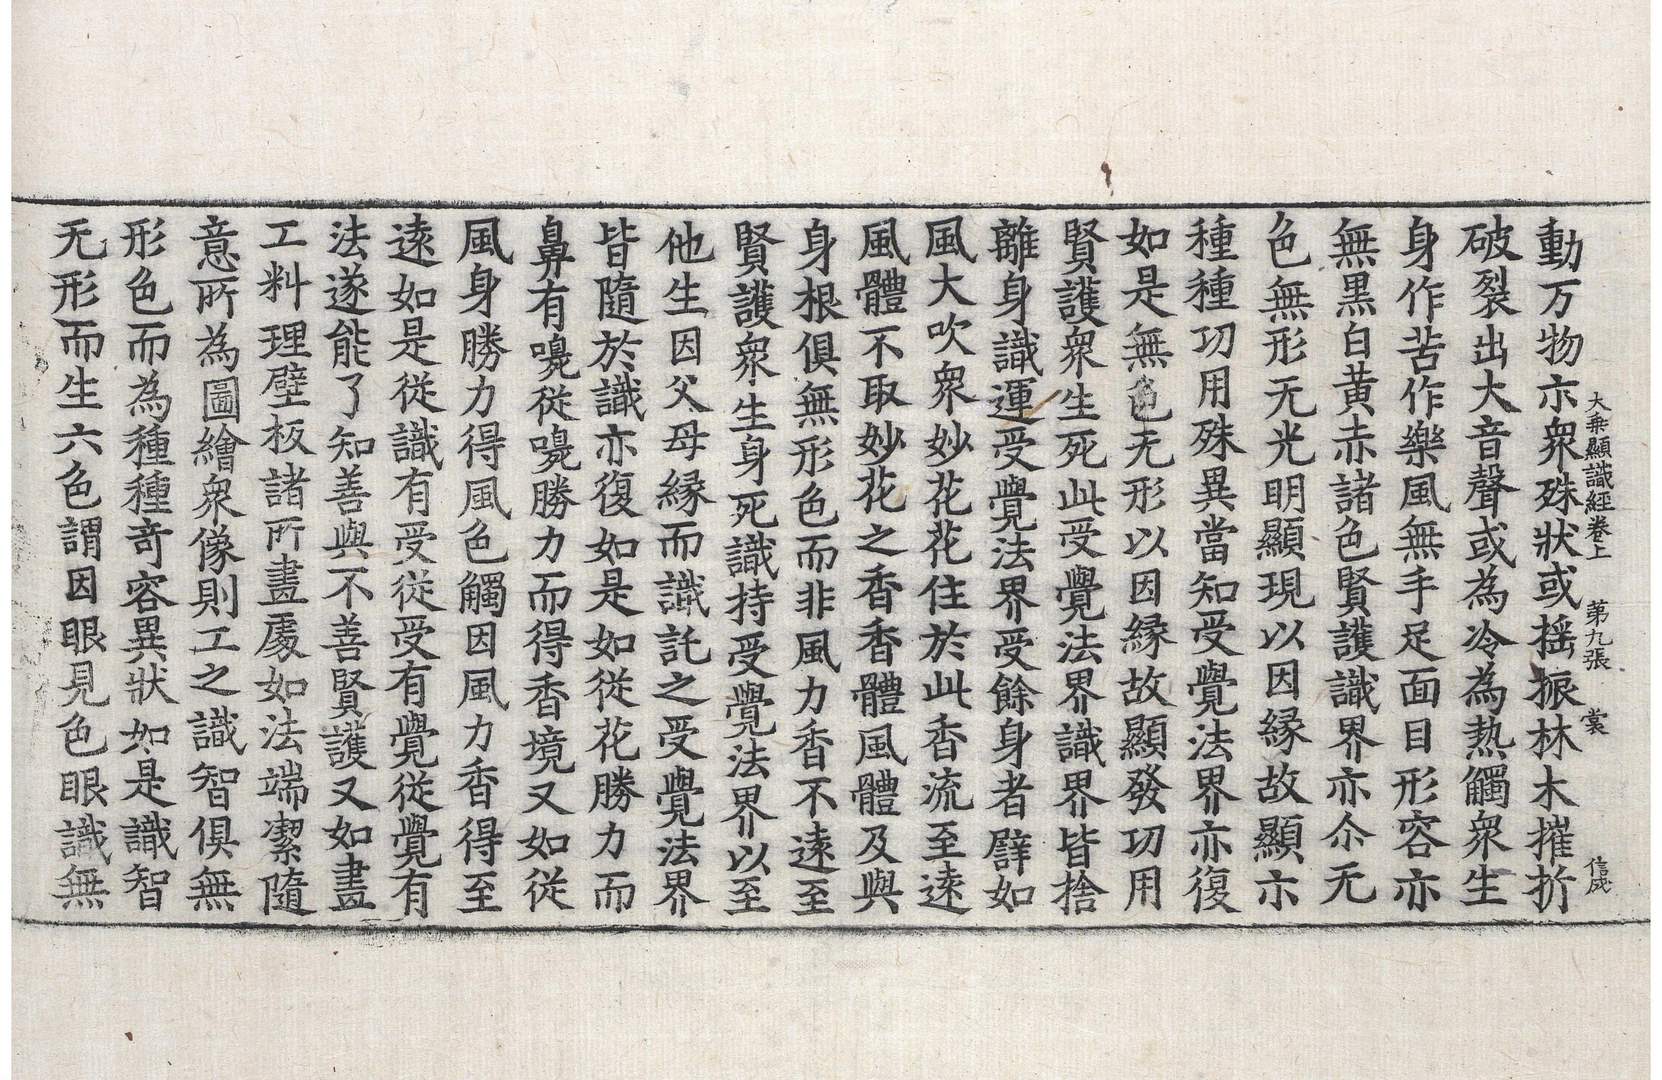 大乗顯識經卷上 第九張 裳 信成
動万物示衆殊狀或摇振林木摧折
破裂出大音聲或為冷為熱觸衆生
身作苦作樂風無手足面目形容亦
無黑白黄赤諸色賢護識界亦尒无
色無形无光明顯現以因緣故顯示
種種功用殊異當知受覺法界亦復
如是無色无形以因緣故顯發功用
賢護衆生死此受覺法界識界皆捨
離身識運受覺法界受餘身者譬如
風大吹衆妙花花住於此香流至遠
風體不取妙花之香香體風體及與
身根俱無形色而非風力香不遠至
賢護衆生身死識持受覺法界以至
他生因父母緣而識託之受覺法界
皆隨於識亦復如是如從花勝力而
鼻有嗅從嗅勝力而得香境又如從
風身勝力得風色觸因風力香得至
遠如是從識有受從受有覺從覺有
法遂能了知善與不善賢護又如畫
工料理壁板諸所畫處如法端潔隨
意所為圖繪衆像則工之識智俱無
形色而為種種奇容異狀如是識智
无形而生六色謂因眼見色眼識無